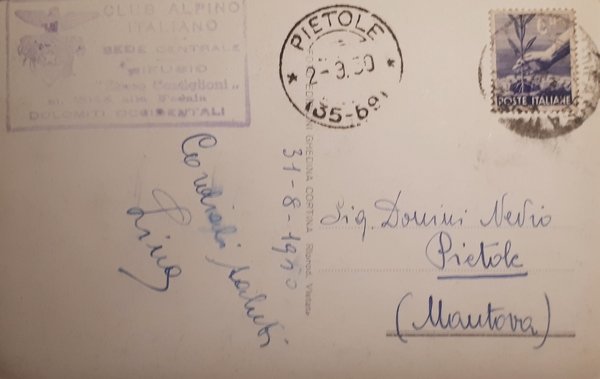 CLUB ALPINO
ITALIANO
SEDE CENTRALE
RIFUGIO
DOLOMITI OCCIDENTALI
PIETOLE
2-9.50
(35-69)
POSTE ITALIANE
GHEDINA CORTINA
31-8-1950
Cordiali saluti
Lina
Sig. Donini Nevio
Pietole
(Mantova)